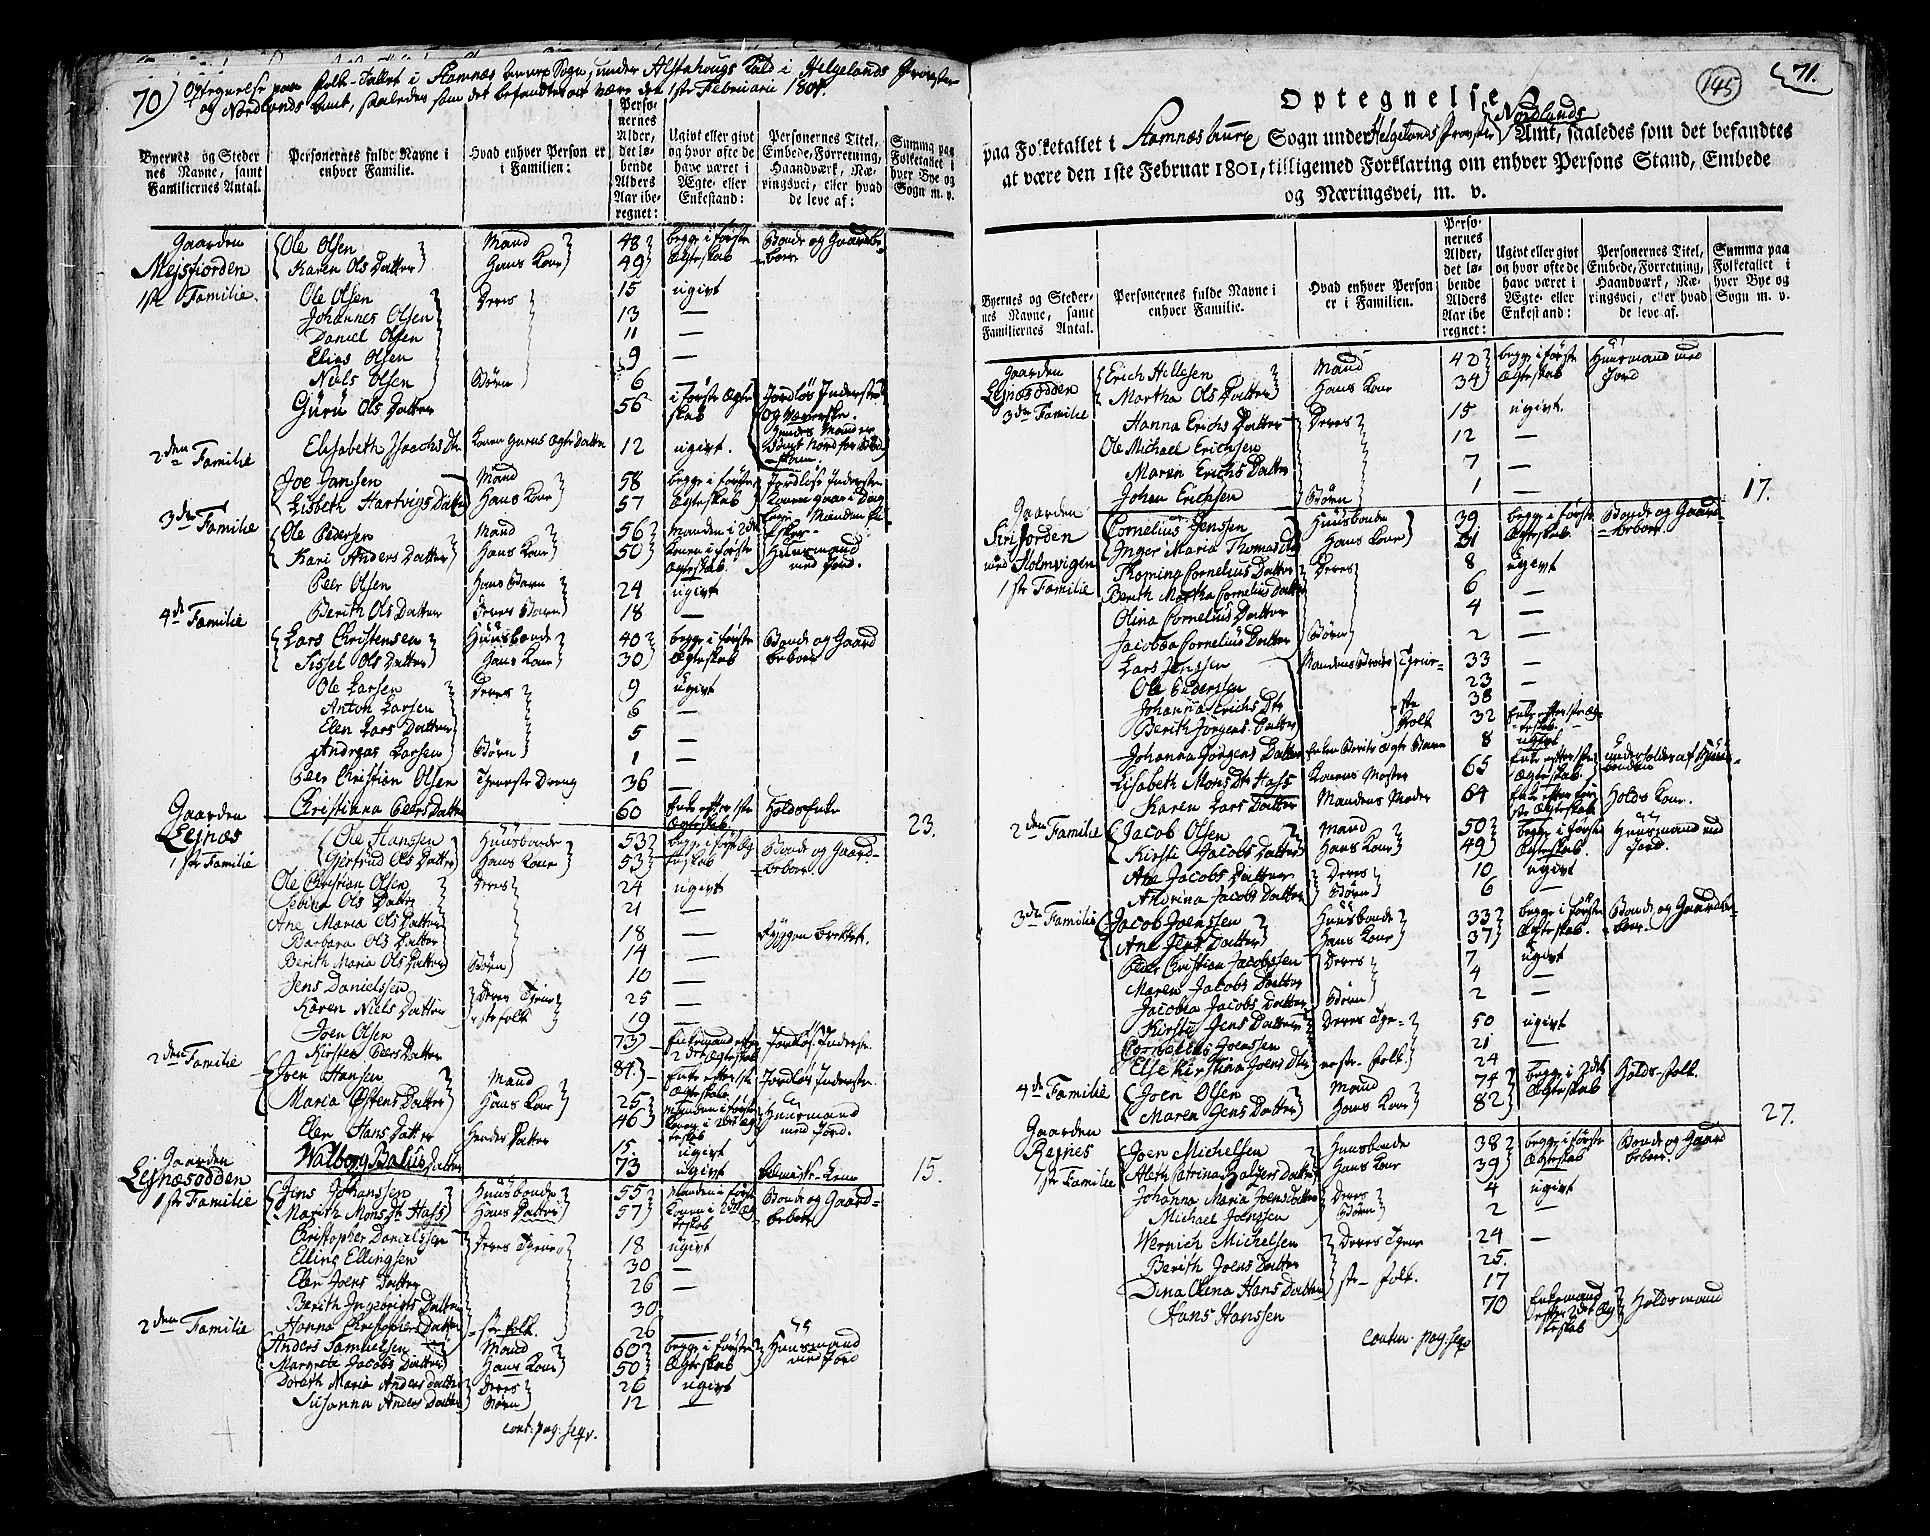 70)
Optegnelse paa Folke-Tallet i Stamnæs Sogn, under Alstahougs Kald i Helgelands Provstie
og Nordlands Amt, saaledes som det befandtes at være den 1ste Februarii 1801.
Byernes og Steder
nes Navne, samt
Familiernes Antal.
Personernes fulde Navne i
enhver Familie.
Hvad enhver Person er
i Familien:
Perso-
nernes
Alder,
det lø-
bende
Alders
Aar ibe-
regnet:
Ugivt eller givt
og hvor ofte de
have været i
Ægte- eller
Enkestand:
Personernes Titel,
Embede, Forretning,
Haandværk, Næ-
ringsvei, eller hvad
de leve af:
Summa paa
Folketallet i
hver Bye og
Sogn m. v.
Gaarden Ole Olsen Mand 48 begge i første Bonde og Gaardbe-
Mejsfiorden Karen Ols Datter Hans Kone 49 Ægteskab boer
1ste Familie. Ole Olsen Deres 15 ugivt
Johannes Olsen 13 —
Daniel Olsen 11 —
Elias Olsen 9 —
Niels Olsen Børn 6
Gurü Ols Datter 56 i første Ægte skab Jordløs Inderste
2den Familie Elisabeth Isaachs Dtr Konen Gurus Ægte Datter 12 ugivt.
Joe Jamsen Mand 58 begge i første Jordløse Inderste
Lisbeth Hartvigs Datter Hans Kone 57 Ægteskab
3de Familie Ole Pedersen Mand 56 Manden i 2det
Kari Anders Datter Hans Kone 50 Konen i første Huusmand
Ægteskab med Jord.
Peer Olsen Hans Barn 24 ugivt
4de Familie Berith Ols Datter Deres Barn 18 —
Lars Christensen Huusbonde 40 begge i første Bonde og Gaard
Sissel Ols Datter Hans Kone 30 Ægteskab beboer
Ole Larsen Deres 9 ugivt
Anton Larsen 6 —
Elen Lars Datter 5 —
Andreas Larsen Børn 1 —
Peer Christian Olsen Tjeneste Dreng 36
Gaarden Christianna Peers Datter 60 Enke efter 1ste Ægteskab Holds Enke 23.
Lejnæs Ole Hansen Huusbonde 53 begge i første Æg- Bonde og Gaard-
1ste Familie Gertrud Ols Datter Hans Kone 53 teskab beboer.
Ole Christian Olsen Deres 24 ugivt
Ols Datter 21 —
Ane Maria Ols Datter 18 — Ryggen brekket.
Barbara Ols Datter 14 —
Berith Maria Ols Datter Børn 10 —
Jens Danielssen Deres Tjene- 25 —
Karen Niels Datter stefolk 19 —
Joen Olsen 73 Enkemand efter 2det Ægteskab Jordløs Inderste
2den Familie Kirsten Peers Datter 84 Enke efter 1ste Ægteskab Jordløs Inderste
Joen Hansen Mand 25 Manden i første Huusmand
Maria Ostens Datter Hans Kone 46 Konen i 2det Ægteskab med Jord.
Elen Hans Datter Hendes Datter 15. ugivt
Gaarden Walborg Balüs Datter 73 ugivt Almisse-Lem 15.
Lejnæsodden Jens Johanssen Huusbonde 55 Manden i første Bonde og Gaard-
1ste Familie Marith Mons Dtr Hass Hans Datter 57 Konen i 2det Ægteskab beboer
Christopher Danielssen Deres Tjene 18 ugivt
Elling Ellingsen 30 —
Elen Joens Datter 26 —
Berith Ingebrigts Datter 30
Hanna Christophers Datter ste folk. 26
2den Familie Anders Samuelsen Mand 60 begge i første Huusmand
Margrete Jacobs Datter Hans Kone 50 Ægteskab med Jord
Doreth Maria Anders Datter Deres 26 ugivt
Susanna Anders Datter Børn 12 —
cont: pag: seqv.
145
71.
Optegnelse
paa Folketallet i Stamnæs Sogn under Helgelands Provstie Nordlands Amt, saaledes som det befandtes
at være den 1ste Februar 1801, tilligemed Forklaring om enhver Persons Stand, Embede
og Næringsvei, m. v.
Byernes og Steder-
nes Navne, samt
Familiernes Antal.
Personernes fulde Navne i
enhver Familie.
Hvad enhver Person
er i Familien.
Perso-
nernes
Alder,
det lø-
bende
Alders
Aar ibe-
regnet:
Ugivt eller givt
og hvor ofte de
have været i
Ægte- eller
Enkestand:
Personernes Titel,
Embede, Forretning,
Haandværk, Næ-
ringsvei, eller hvad
de leve af.
Summa paa
Folketallet i
hver Bye og
Sogn m. v.
Gaarden Erich Hillesen Mand 42 begge i første Huusmand med
Lejnæsodden Martha Ols Datter Hans Kone 34 Ægteskab Jord
3de Familie Hanna Erichs Datter Deres 15 ugivt.
Ole Michael Erichsen 12 —
Maren Erichs Datter 7 —
Johan Erichsen Børn 1 — 17.
Gaarden Cornelius Jenssen Huusbonde 39 begge i første Bonde og Gaard-
Inger Maria Thomas Dtr Hans Kone 31 Ægteskab beboer.
med Holmvigen Cornelius Datter Deres 8 ugivt
1ste Familie Berith Martha Cornelius Datter 6 —
Olina Cornelius Datter 4 —
Jacobea Cornelius Datter Børn 2 —
Lars Jenssen Mandens Broder Tjene- 33 —
Ole Pederssen 23 —
Johanna Erichs Dtr ste 38
Berith Jørgens Datter Folk 32 Enke efter 1ste Ægteskab
Johanna Jørgens Datter Enken Berits Ægte Barn 8 ugivt
Lisabeth Mons Dtr Hass Konens Moster 65 Enke efter 1ste Ægteskab underholdes af Huusbonden
Karen Lars Datter Mandens Moder 64 Holds Kone.
2den Familie Jacob Olsen Mand 50 begge i første Huusmand med
Kirsti Jacobs Datter Hans Kone 49 Ægteskab. Jord.
Ane Jacobs Datter Deres 10 ugivt
Andrina Jacobs Datter Børn 6 —
3de Familie Jacob Joenssen Huusbonde 33 begge i første Bonde og Gaardbe-
Ane Jens Datter Hans Kone 37 Ægteskab. boer.
Peder Christian Jacobssen Deres 7 ugivt
Maren Jacobs Datter 4 —
Jacobea Jacobs Datter Børn 2 —
Kirsti Jens Datter Deres Tje- 50 ugivt
Cornelius Joenssen 21 —
Else Kirstina Joens Dtr neste-Folk 24
4de Familie Joen Olsen Mand 74 begge i 2det Holds-Folk.
Maren Jens Datter Hans Kone 82 Ægteskab
27.
Gaarden Joen Michelsen Huusbonde 38 begge i første Bonde og Gaard
Rejnes Aleth Catrina Holgers Datter Hans Kone 39 Ægteskab beboer.
1ste Familie Johanna Maria Joens datter Deres 4 ugivt
Michael Joenssen Børn 2 —
Wernich Michelsen Deres Tjene 24 —
Berith Joens Datter 25.
Dina Olina Hans Datter ste-Folk. 17
Hans Hanssen 70 Enkemand efter 2det Ægteskab Holdsmand
contin: pag: seqv